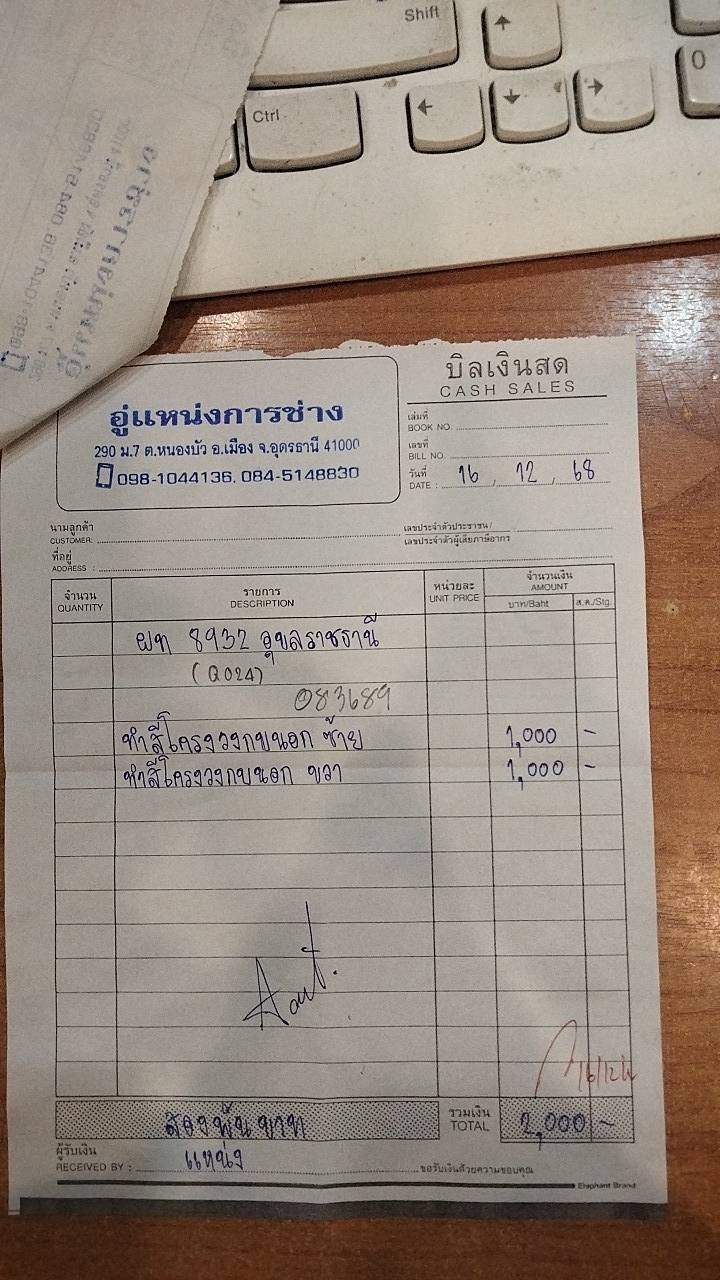 Shift
Ctrl
0
อู่แหน่งการช่าง
290 ม.7 ต.หนองบัว อ.เมือง จ.อุดรธานี 41000
098-1044136, 084-5148830
บิลเงินสด
CASH SALES
เล่มที่
BOOK NO.
เลขที่
BILL NO.
วันที่
DATE : 16 , 12 , 68
นามลูกค้า
CUSTOMER:
เลขประจำตัวประชาชน/
เลขประจำตัวผู้เสียภาษีอากร
ที่อยู่
ADDRESS :
จำนวน
QUANTITY
รายการ
DESCRIPTION
หน่วยละ
UNIT PRICE
จำนวนเงิน
AMOUNT
บาท/Baht
ส.ต./Stg.
ผท 8932 อุบลราชธานี
(Q024)
083689
ทำสีโครงวงกบนอก ซ้าย 1,000 -
ทำสีโครงวงกบนอก ขวา 1,000 -
16/12
สองพันบาท
รวมเงิน
TOTAL
2,000 -
ผู้รับเงิน
RECEIVED BY : แหน่ง
ขอรับเงินด้วยความขอบคุณ
Elephant Brand